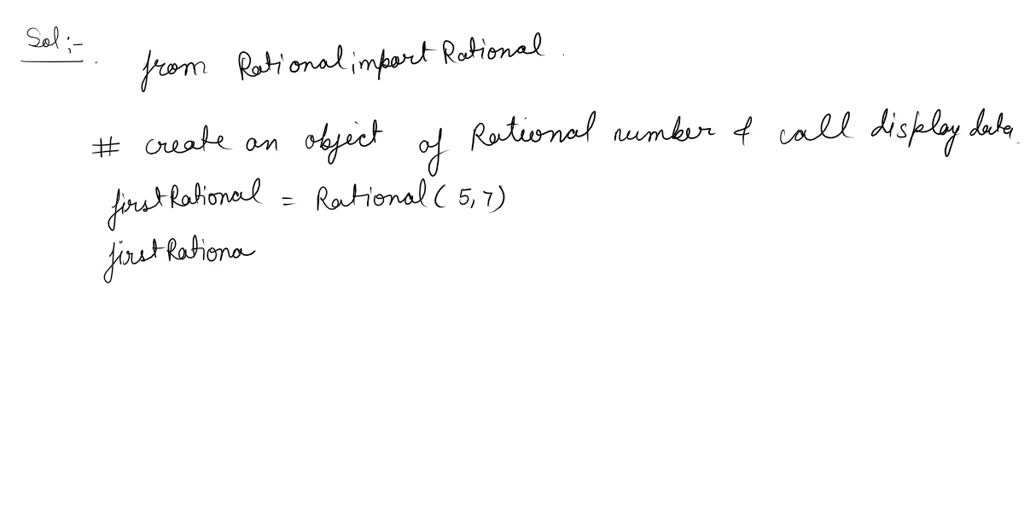 Sol :-
from Rational import Rational.
# create an object of Rational number & call display data.
firstRational = Rational( 5,7)
firstRationa